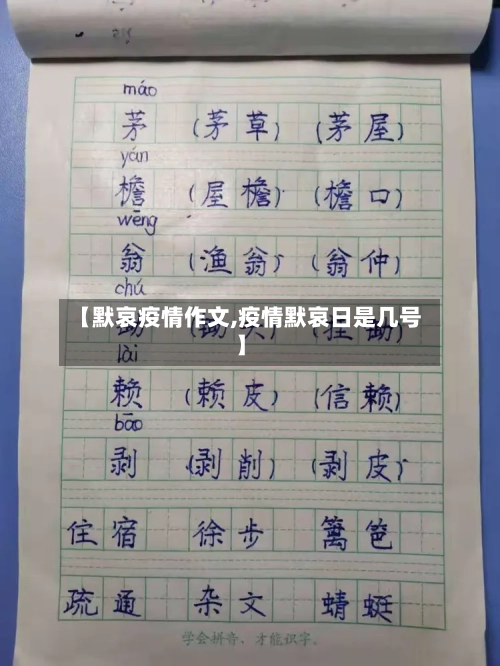 máo
茅 (茅草) (茅屋)
yán
檐 (屋檐) (檐口)
wēng
翁 (渔翁) (翁仲)
chú
【默哀疫情作文,疫情默哀日是几号
】
lài
赖 (赖皮) (信赖)
bāo
剥 (剥削) (剥皮)
住宿 徐步 篱笆
疏通 杂文 蜻蜓
学会拼音、才能识字。